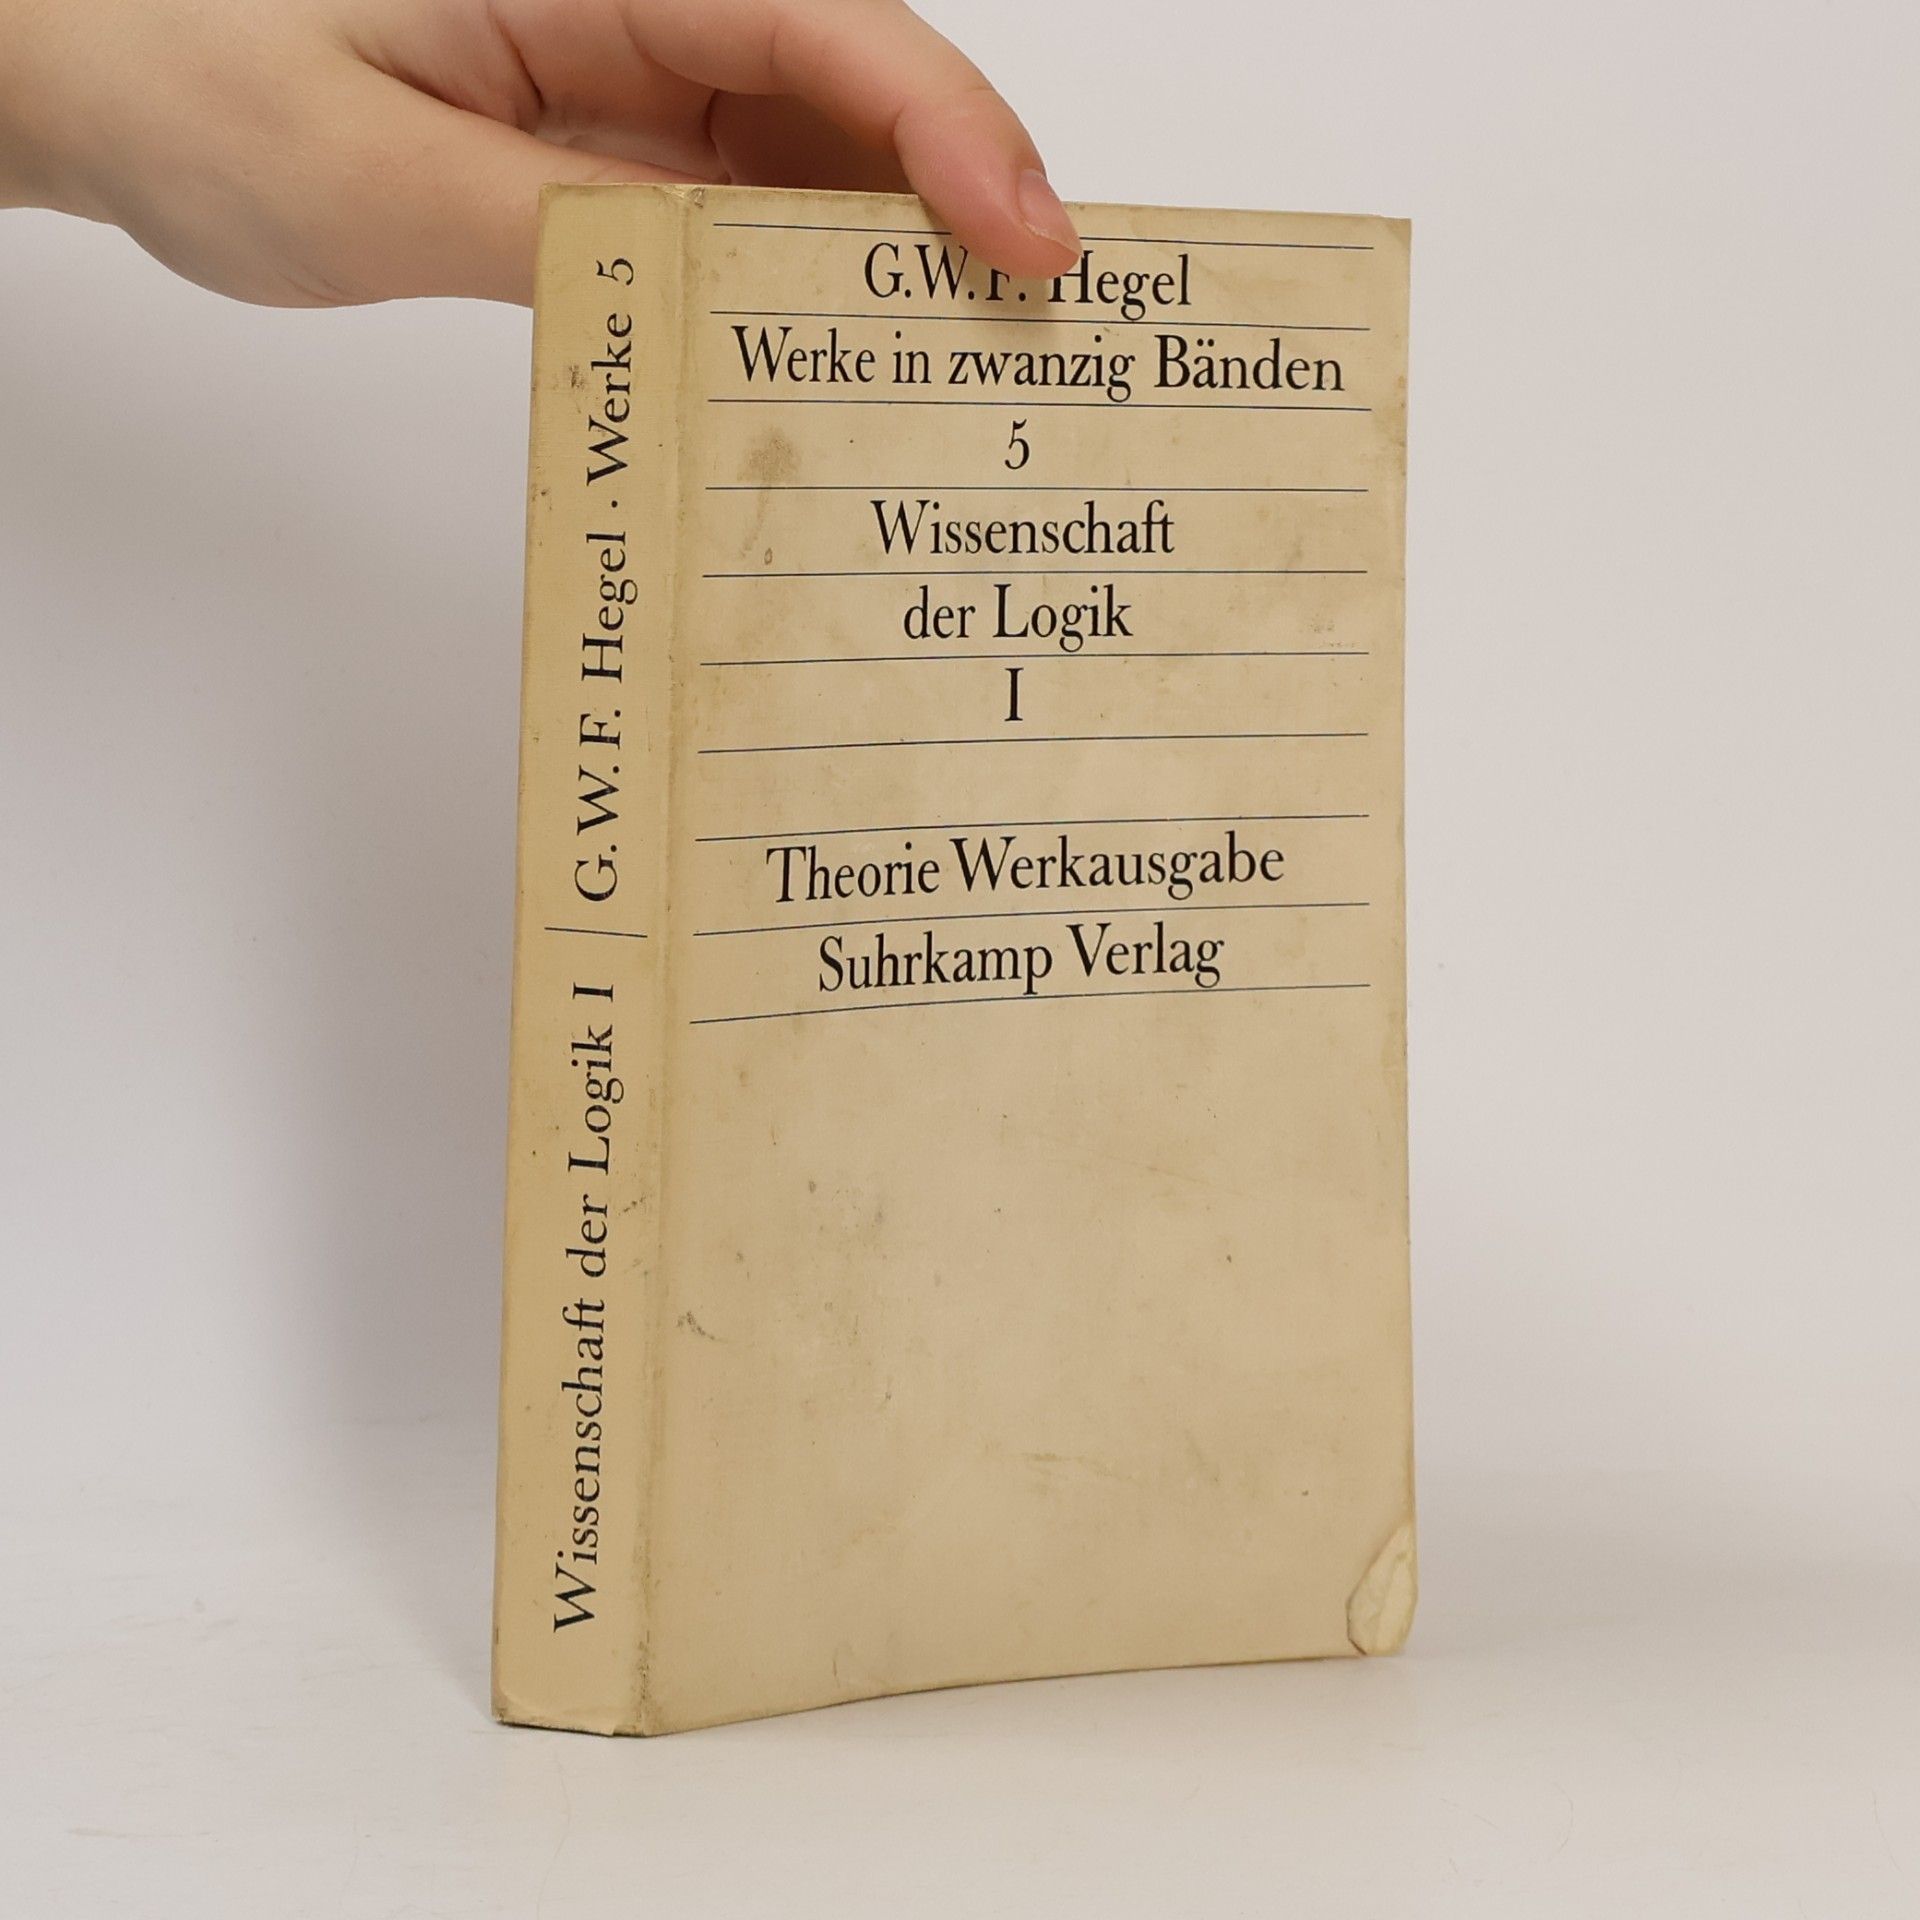 G.W.F. Hegel
Werke in zwanzig Bänden
5
Wissenschaft
der Logik
I
Theorie Werkausgabe
Suhrkamp Verlag
Wissenschaft der Logik I | G. W. F. Hegel . Werke 5